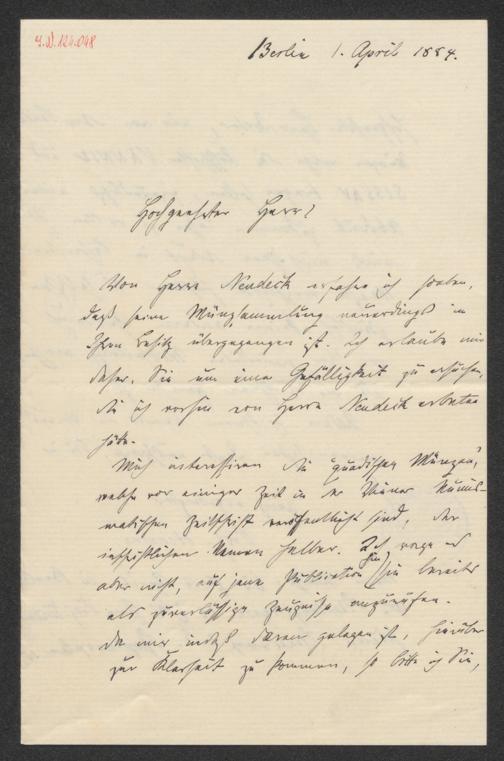 I.N. 124.048
Berlin 1. April 1884.
Hochgeehrter Herr!
Von Herrn Neudeck erfahre ich soeben,
daß seine Münzsammlung neuerdings in
Ihren Besitz übergegangen ist. Ich erlaube mir
daher, Sie um eine Gefälligkeit zu ersuchen,
die ich vorhin von Herrn Neudeck erbeten
habe.
Mich interessiren die „quadischen Münzen",
welche vor einiger Zeit in der Wiener Numis-
matischen Zeitschrift veröffentlicht sind, der
inschriftlichen Namen halber. Ich wage es
aber nicht, auf jene Publication hin sie bereits
als zuverlässige Zeugnisse anzurufen.
Da mir indeß daran gelegen ist, hierüber
zur Klarheit zu kommen, so bitte ich Sie,